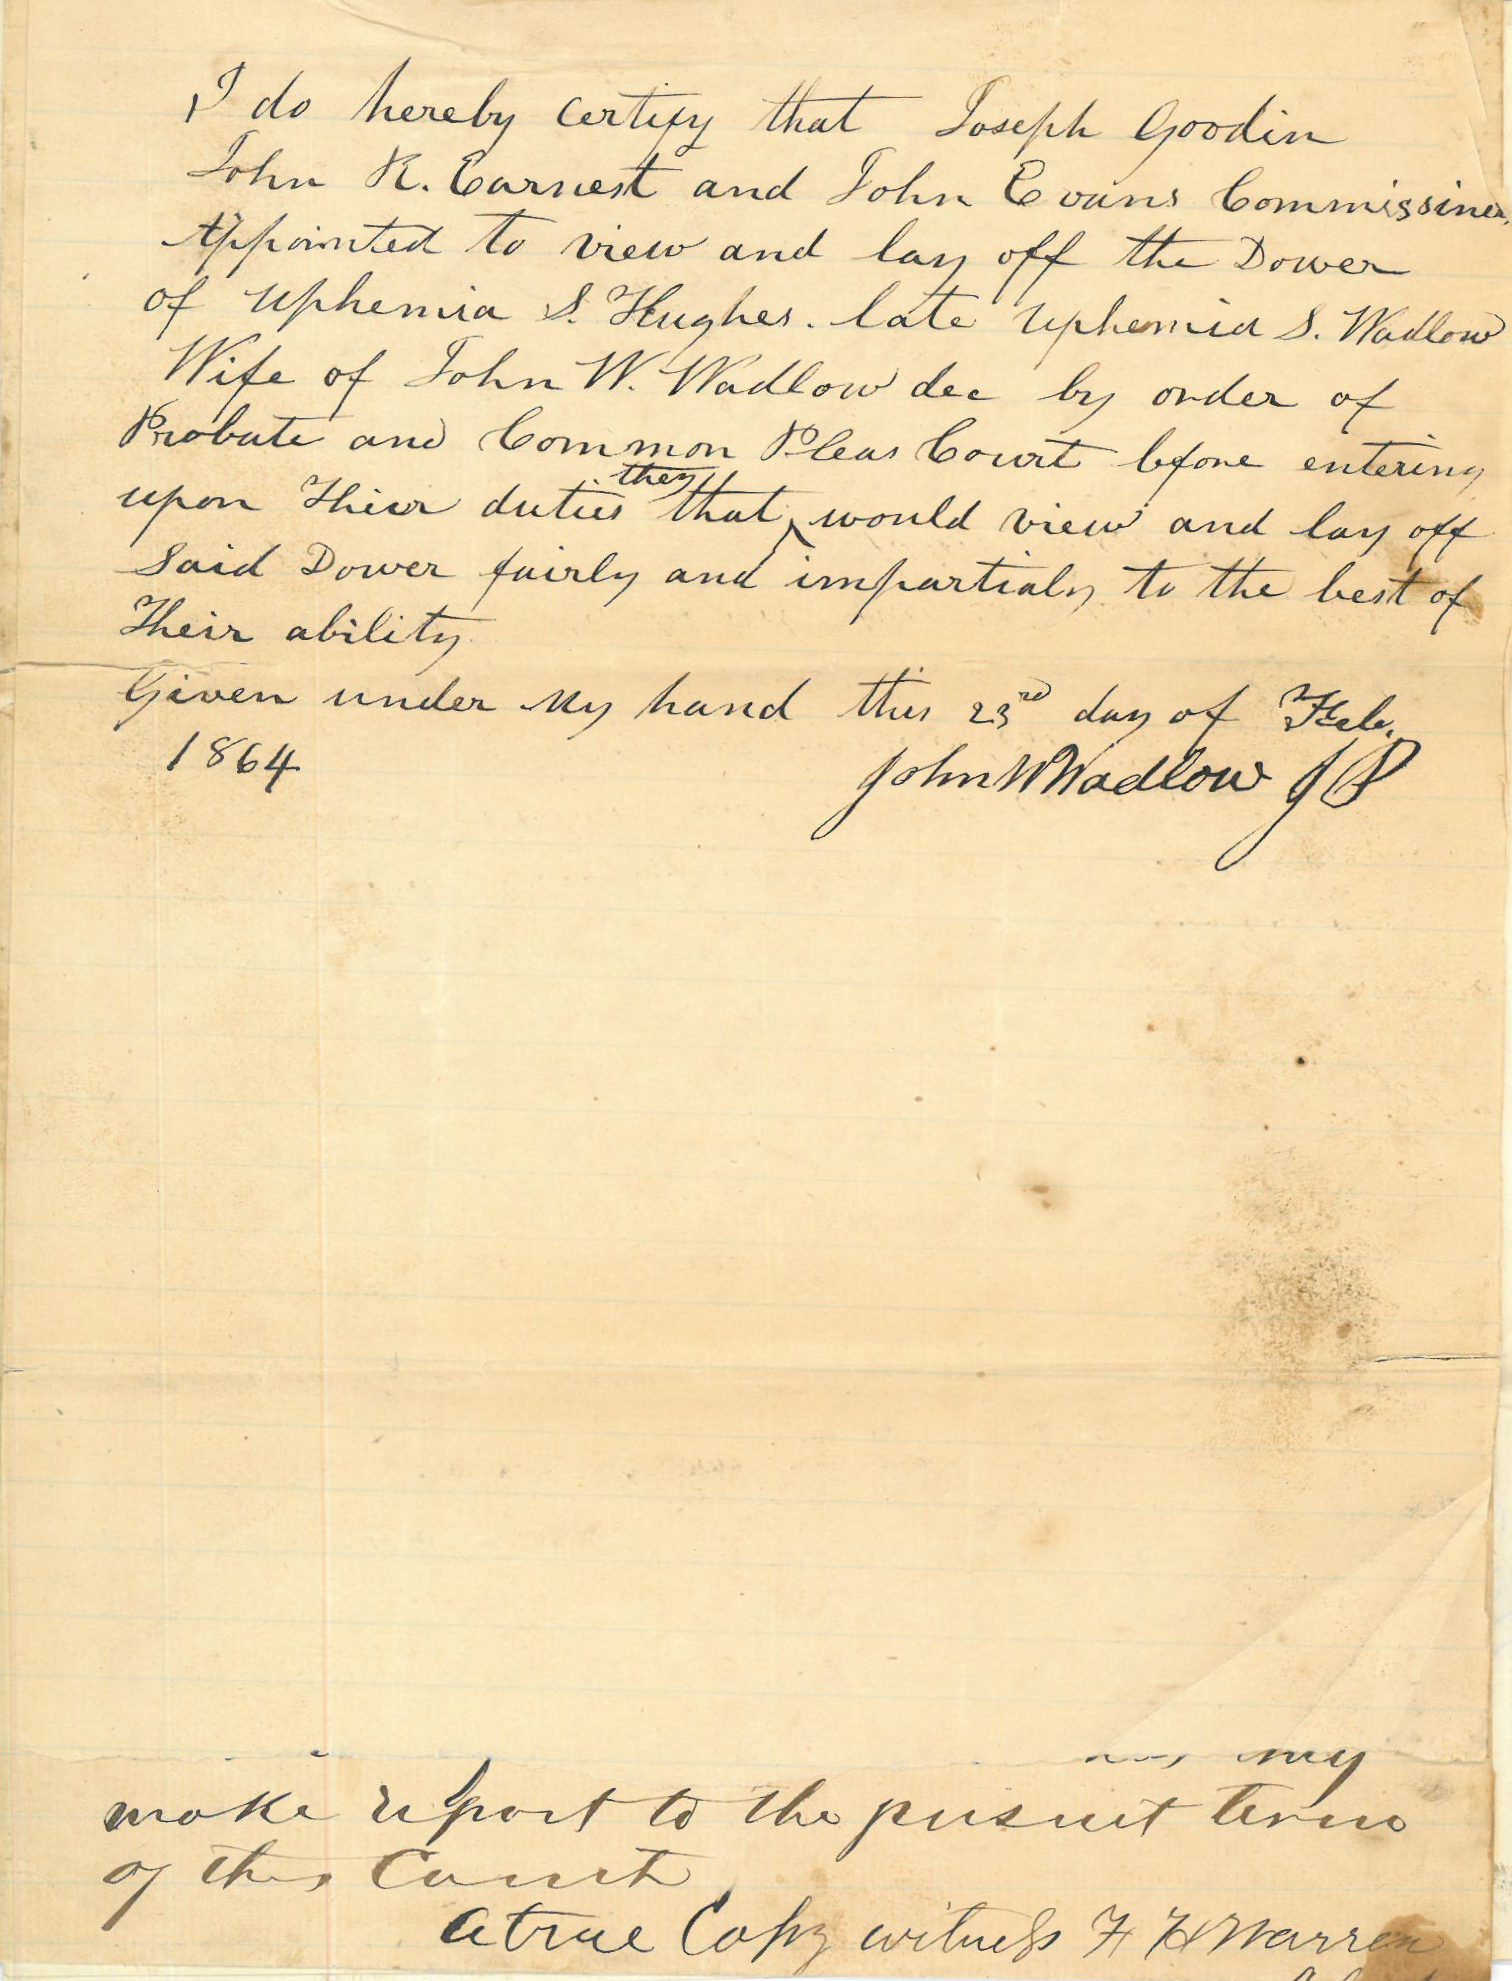 I do hereby certify that Joseph Goodin
John R. Earnest and John Evans Commissiners
Appointed to view and lay off the Dower
of Uphemia S. Hughes. late Uphemia S. Wadlow
Wife of John W. Wadlow dec by order of
Probate and Common Pleas Court before entering
upon Thier duties that they would view and lay off
Said Dower fairly and impartialy to the best of
Their ability
Given under My hand this 23rd day of Feb.
1864 John W Wadlow J P
my
make report to the present term
of this Court
A true Copy witness F H Warren